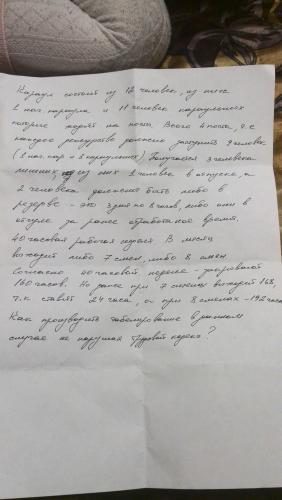 Караул состоит из 12 человек, из них
1 нач. караула и 11 человек караульных
которые ходят на посты. Всего 4 поста, т.е.
каждое дежурство должно заступать 9 человек
(1 нач. кар и 8 караульных). Получается 3 человека
лишних, из них 1 человек в отпуске, а
2 человека должны быть либо в
резерве - это 3 дня по 8 часов, либо они в
отгуле за ранее отработанное время.
40 часовая рабочая неделя. В месяц
выходит либо 7 смен, либо 8 смен
Согласно 40 часовой недели -
160 часов. Но даже при 7 сменах выходит 168,
т.к ставят 24 часа, а при 8 сменах - 192 часа
Как производить табелирование в данном
случае не нарушая Трудовой кодекс?